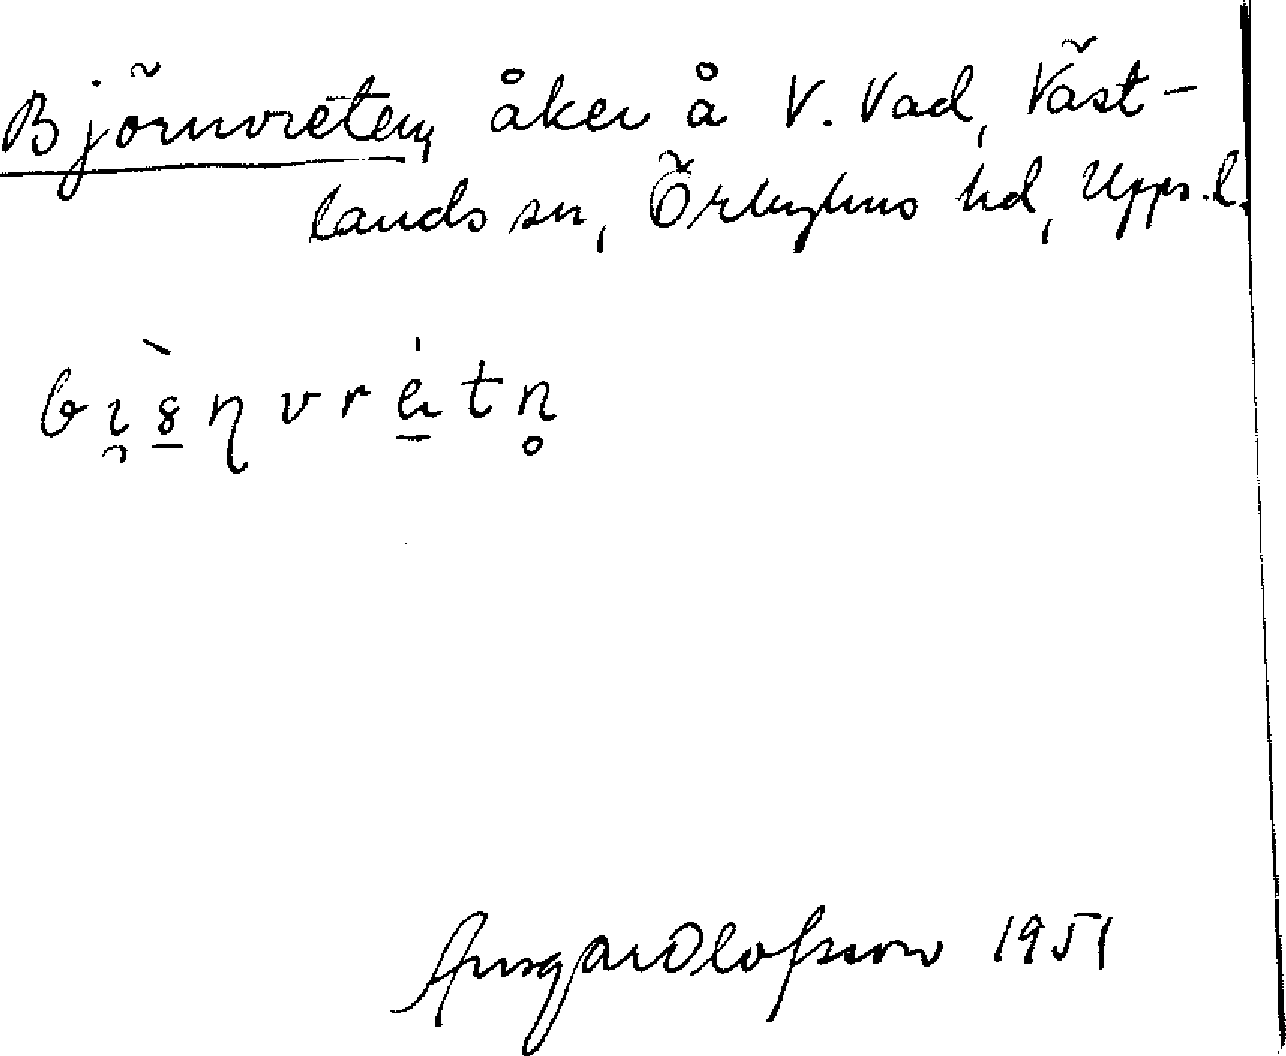 Björnvreten, åker å V. Vad, Väst-
lands sn, Örbyhus hd, Upps. l.
Ansgar Olofsson 1951